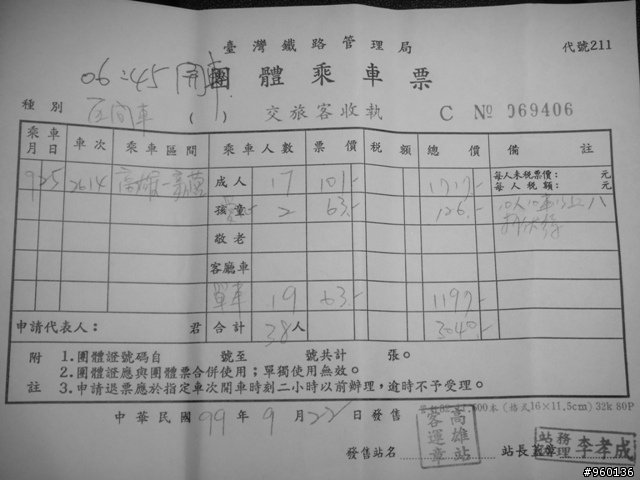 臺灣鐵路管理局 代號211
06:45開車
團體乘車票
種別 區間車 ( ) 交旅客收執 C № 069406
乘車月日 車次 乘車區間 乘車人數 票價 稅額 總價 備註
9 25 2614 高雄－嘉義 成人 17 101.- 1717.- 每人未稅票價: 元
每人稅額: 元
孩童 2 63.- 126.- 10人
敬老
客廳車
單車 19 63.- 1197.-
申請代表人: 君 合計 38人 3040.-
附註 1.團體證號碼自 號至 號共計 張。
2.團體證應與團體票合併使用;單獨使用無效。
3.申請退票應於指定車次開車時刻二小時以前辦理,逾時不予受理。
中華民國 99 年 9 月 22 日發售
(橋式16×11.5cm) 32k 80P
高雄站客運章
發售站名 站長
站務 理 李孝成
#960136